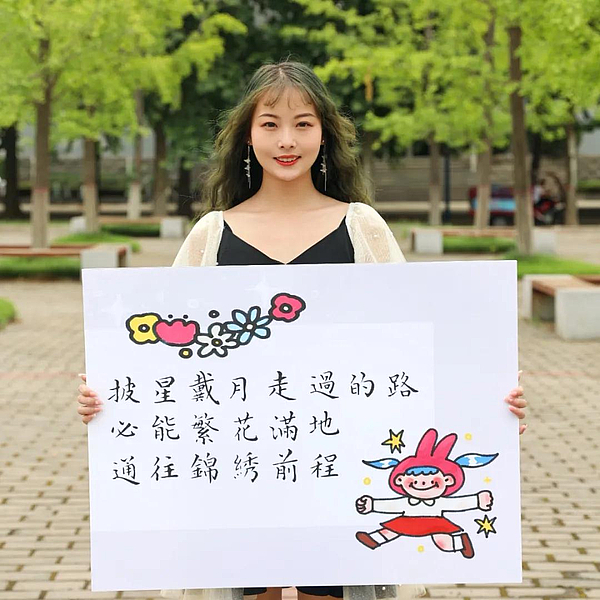 披星戴月走過的路
必能繁花滿地
通往錦綉前程